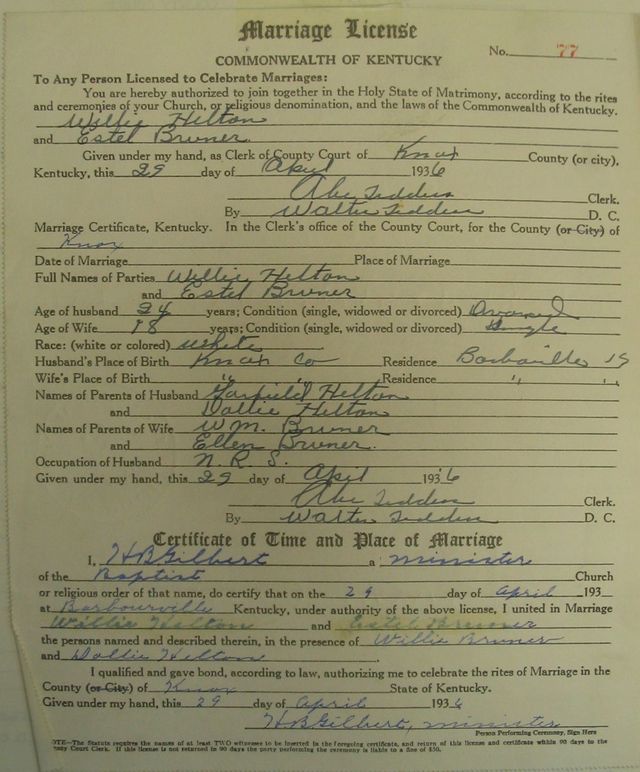 Marriage License
COMMONWEALTH OF KENTUCKY
No. 77
To Any Person Licensed to Celebrate Marriages:
You are hereby authorized to join together in the Holy State of Matrimony, according to the rites
and ceremonies of your Church, or religious denomination, and the laws of the Commonwealth of Kentucky.
Willie Helton
and Estel Bruner
Given under my hand, as Clerk of County Court of Knox County (or city),
Kentucky, this 29 day of April 1936
Abe Clerk.
By Walter D. C.
Marriage Certificate, Kentucky. In the Clerk's office of the County Court, for the County (or City) of
Knox
Date of Marriage Place of Marriage
Full Names of Parties Willie Helton
and Estel Bruner
Age of husband 24 years; Condition (single, widowed or divorced) Divorced
Age of Wife 18 years; Condition (single, widowed or divorced) Single
Race: (white or colored) white
Husband's Place of Birth Knox Co Residence
Wife's Place of Birth " " Residence " "
Names of Parents of Husband Garfield Helton
and Dollie Helton
Names of Parents of Wife W.M. Bruner
and Ellen Bruner.
Occupation of Husband N. R. S.
Given under my hand, this 29 day of April 1936
Abe Clerk.
By Walter D. C.
Certificate of Time and Place of Marriage
I, H B Gilbert a minister
of the Baptist Church
or religious order of that name, do certify that on the 29 day of April 193
at Barbourville Kentucky, under authority of the above license, I united in Marriage
Willie Helton and Estel Bruner
the persons named and described therein, in the presence of Willie Bruner
and Dollie Helton
I qualified and gave bond, according to law, authorizing me to celebrate the rites of Marriage in the
County (or City) of Knox State of Kentucky.
Given under my hand, this 29 day of April 1936
H B Gilbert, minister
Person Performing Ceremony, Sign Here
OTE—The Statute requires the names of at least TWO witnesses to be inserted in the foregoing certificate, and return of this license and certificate within 90 days to the
Court Clerk. If this license is not returned in 90 days the party performing the ceremony is liable to a fine of $50.